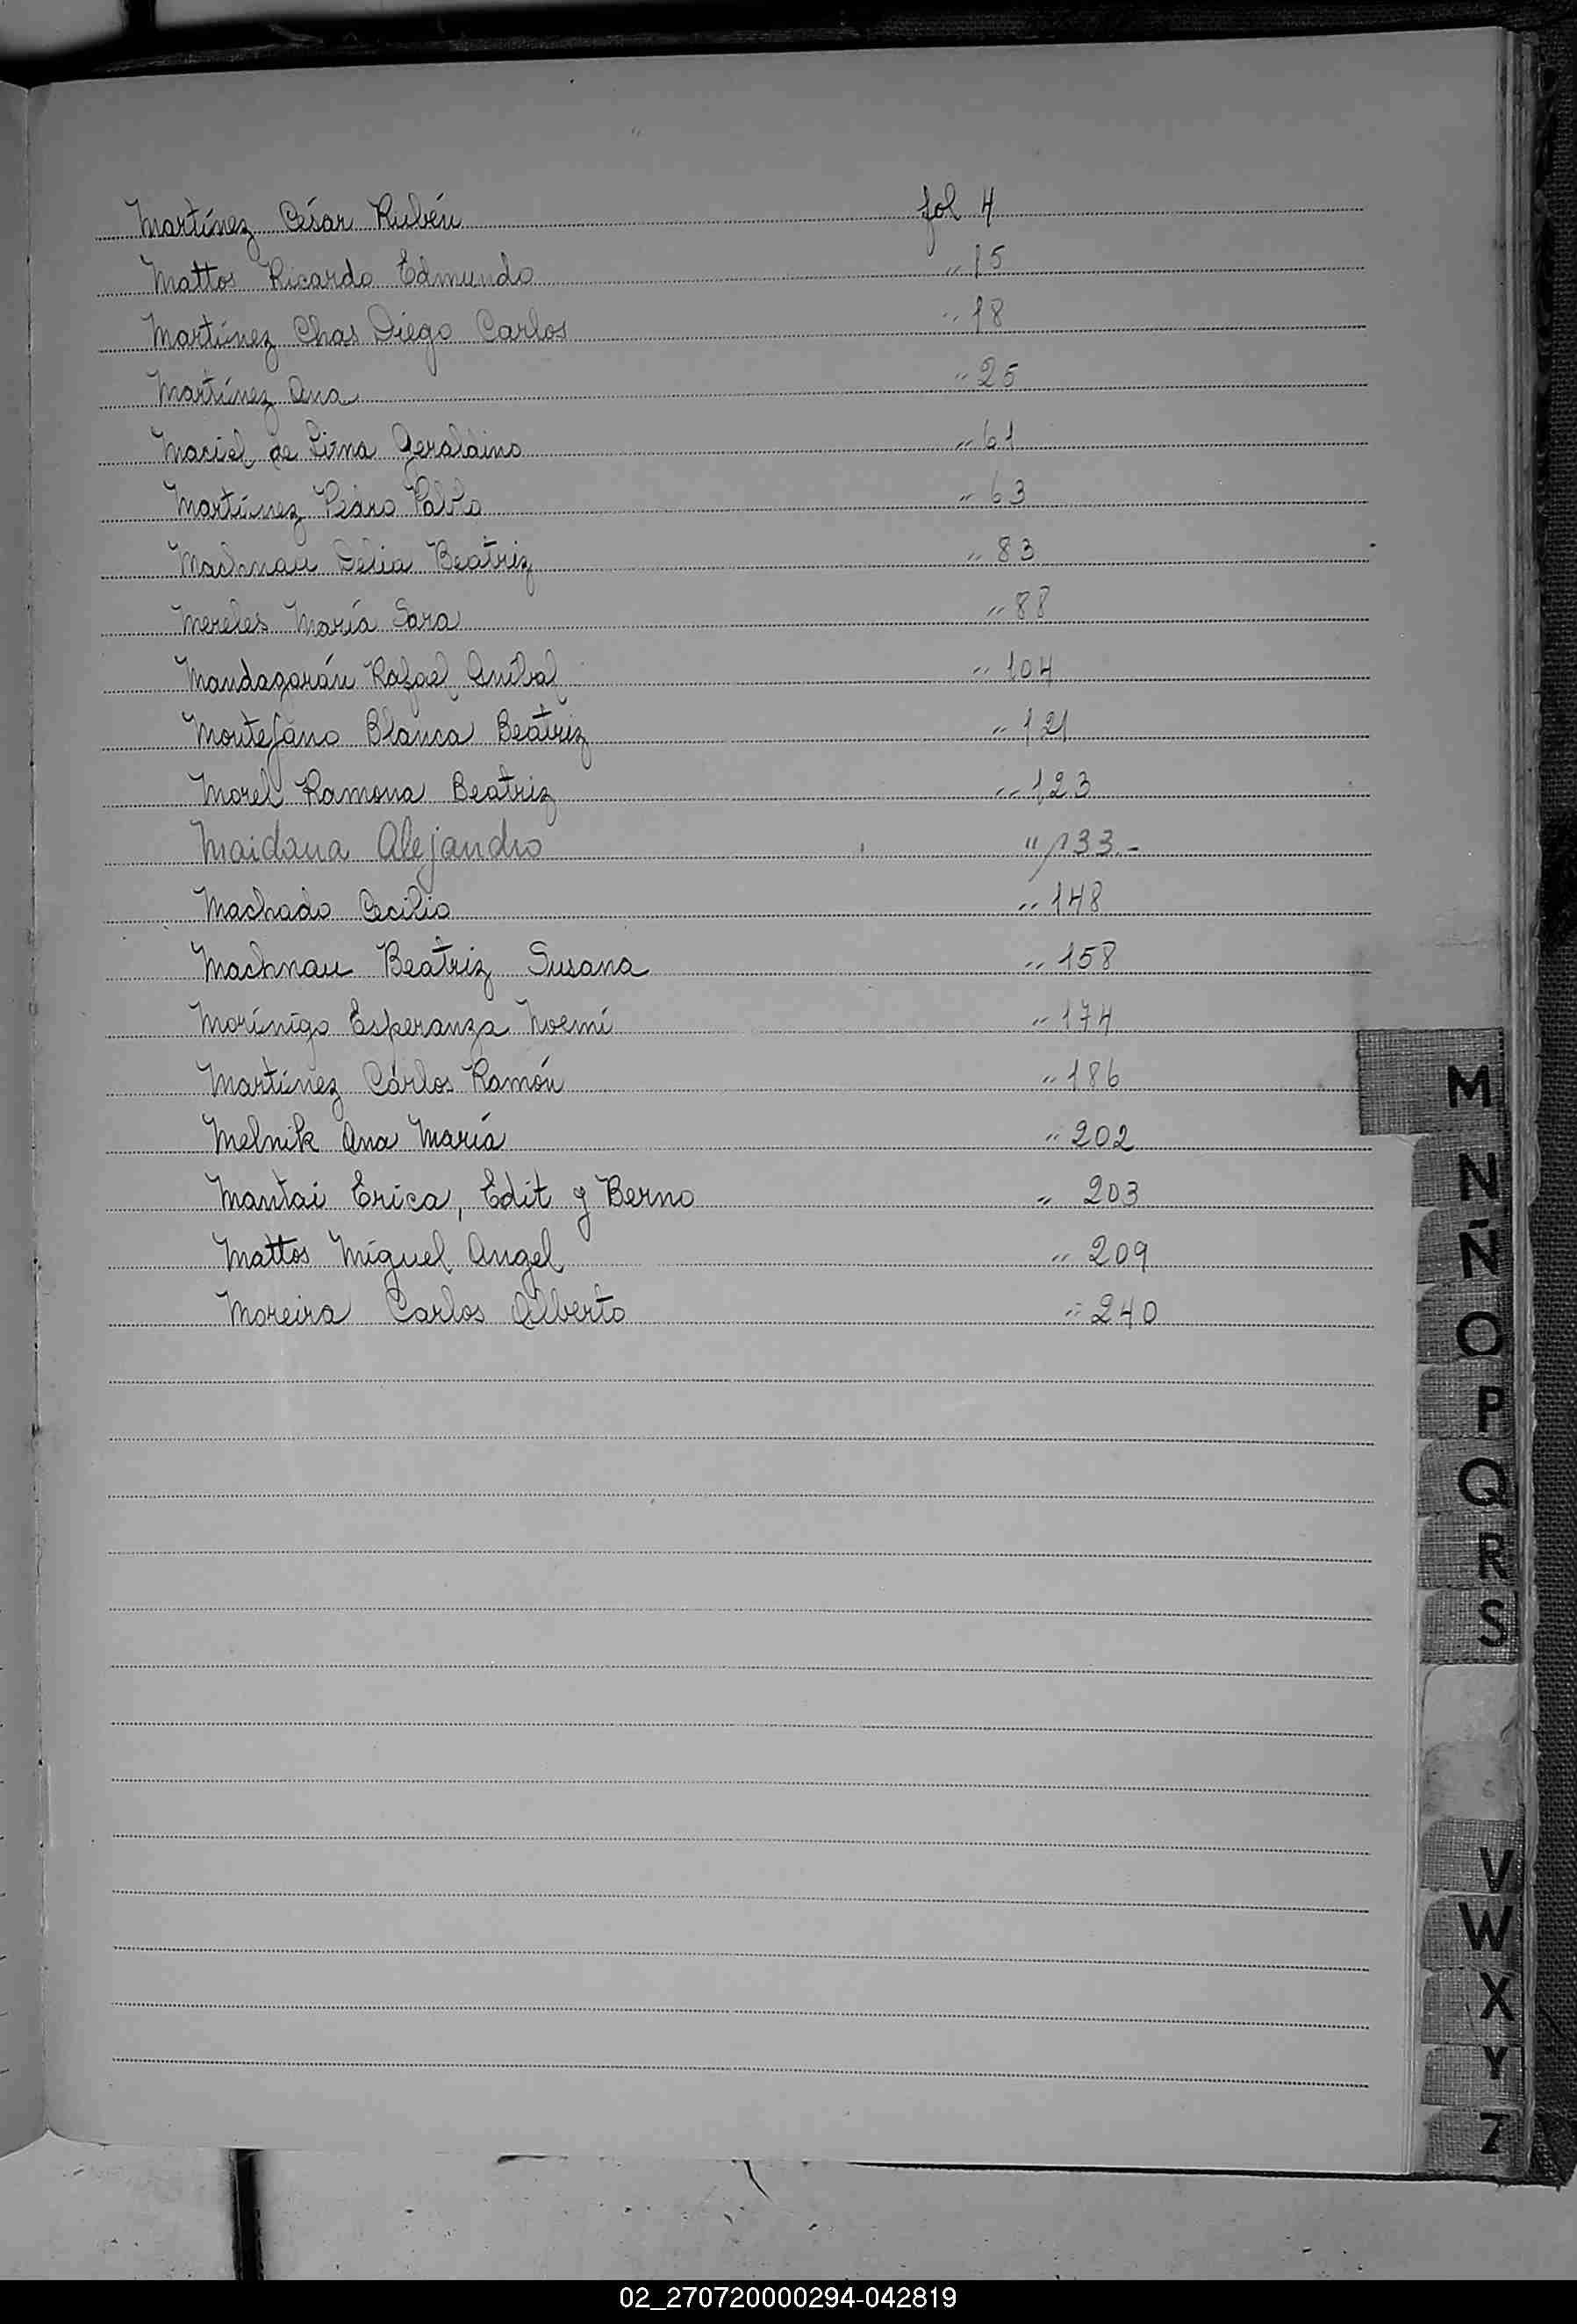 Martínez César Rubén fol 4
Mattos Ricardo Edmundo " 15
Martínez Chas Diego Carlos " 18
Martínez Ana " 25
Maciel de Lima Geraldino " 61
Martínez Pedro Pablo " 63
Machnau Delia Beatriz " 83
Mereles María Sara " 88
Mandagarán Rafael Aníbal " 104
Montejano Blanca Beatriz " 121
Morel Ramona Beatriz " 123
Maidana Alejandro " 133.-
Machado Cecilio " 148
Machnau Beatriz Susana " 158
Morínigo Esperanza Noemí " 174
Martínez Carlos Ramón " 186
Melnik Ana María " 202
Mantai Erica, Edit y Berno " 203
Mattos Miguel Angel " 209
Moreira Carlos Alberto " 240
M
N
Ñ
O
P
Q
R
S
V
W
X
Y
Z
02_270720000294-042819